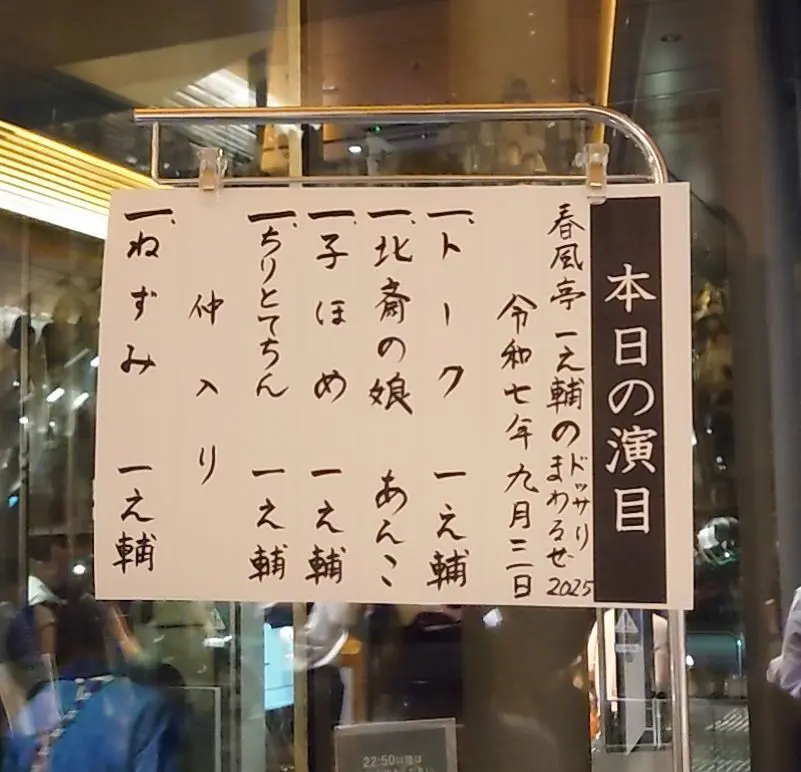 本日の演目
春風亭一之輔のドッサリまわるぜ2025
令和七年九月三日
一、トーク 一之輔
一、北斎の娘 あんこ
一、子ほめ 一之輔
一、ちりとてちん 一之輔
仲入り
一、ねずみ 一之輔
22:50以降は